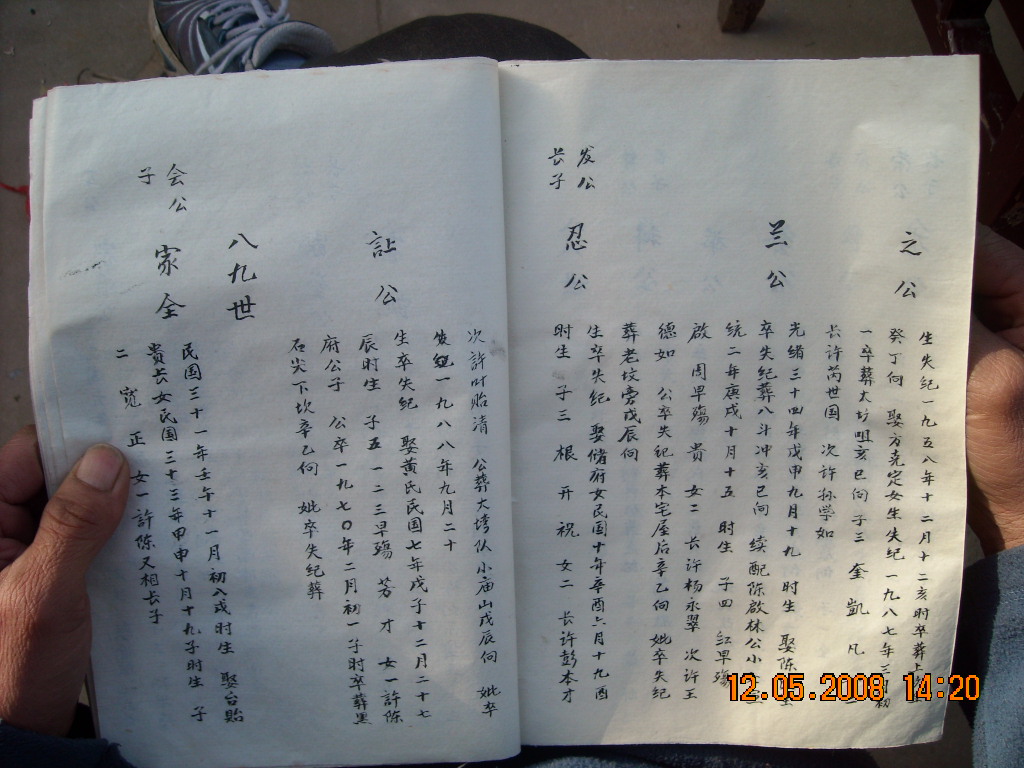 之公
生失纪一九五八年十二月十二亥时卒葬上
癸丁向 娶方克定女生失纪 一九八七年三 初
一卒葬大坊咀亥巳向 子三 奎 凯 凡
长许芮世国 次许孙学如
兰公
光绪三十四年戊申九月十九 时生 娶陈
卒失纪葬八斗冲亥巳向 续配陈啟林公小
统二年庚戌十月十五 时生 子四 红早殇
啟 周早殇 贵 女二 长许杨永翠 次许王
德如 公卒失纪葬本宅屋后辛乙向 妣卒失纪
葬老坟旁戌辰向
发公
长子
忍公
生卒失纪 娶储府女民国十年辛酉六月十九酉
时生 子三 根 开 祝 女二 长许彭本才
次许叶贻清 公葬大塆队小庙山戌辰向 妣卒
失纪一九八八年九月二十
訟公
生卒失纪 娶黄氏民国七年戊子十二月二十七
辰时生 子五 一二三早殇 芳 才 女一许陈
府公子 公卒一九七〇年二月初一子时卒葬黑
石尖下坎辛乙向 妣卒失纪葬
八九世
会公
子
家全
民国三十一年壬午十一月初八戌时生 娶台贻
贵长女民国三十三年甲申十月十九子时生 子
二 宽 正 女一许陈又相长子
12.05.2008 14:20